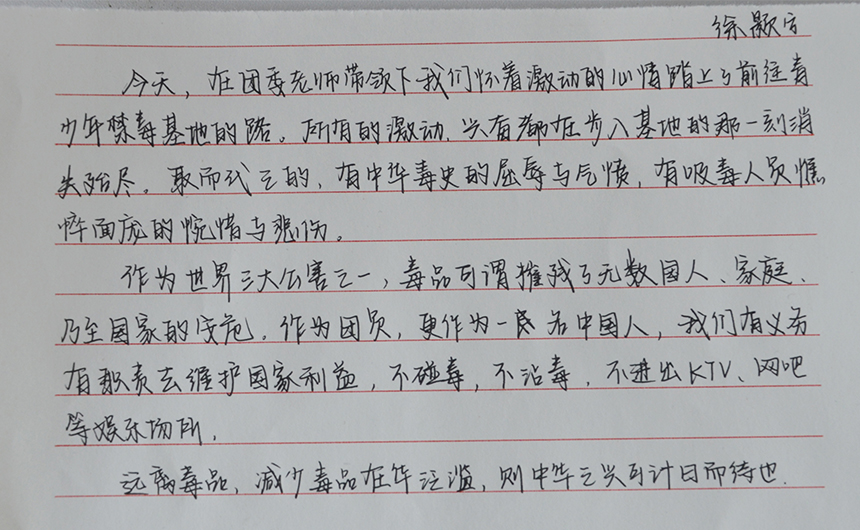 徐颢方
今天，在团委老师带领下我们怀着激动的心情踏上了前往青
少年禁毒基地的路。所有的激动、兴奋都在步入基地的那一刻消
失殆尽。取而代之的，有中华毒史的屈辱与气愤，有吸毒人员憔
悴面庞的惋惜与悲伤。
作为世界三大公害之一，毒品可谓摧残了无数国人、家庭、
乃至国家的安危。作为团员，更作为一名中国人，我们有义务
有职责去维护国家利益，不碰毒，不沾毒，不进出KTV、网吧
等娱乐场所。
远离毒品，减少毒品在华泛滥，则中华之兴可计日而待也.